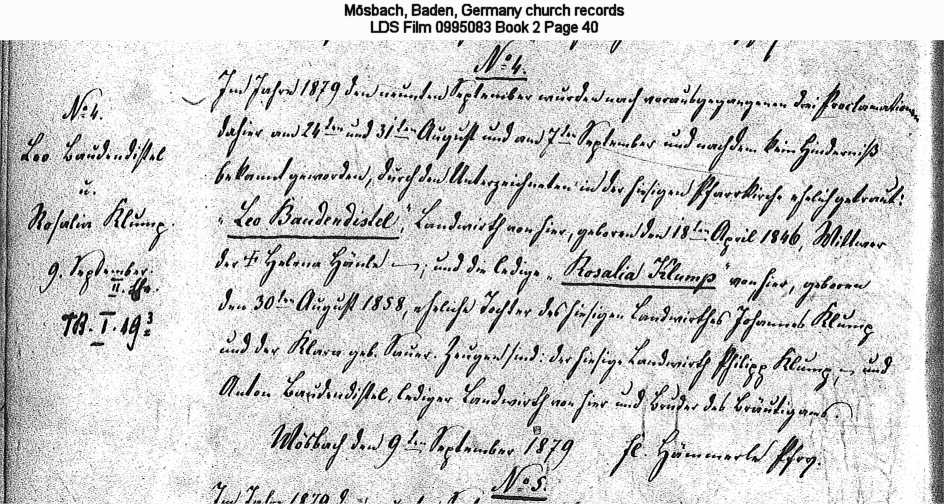 Mösbach, Baden, Germany church records
LDS Film 0995083 Book 2 Page 40
No 4.
No 4.
Leo Baudendistel
u.
Rosalia Klump.
9. September.
II. Ehe.
I. 19³
Im Jahre 1879 den neunten September wurden nach vorausgegangenen drei Proclamationen
dahier am 24ten und 31ten August und am 7ten September und nachdem kein Hinderniß
bekannt geworden, durch den Unterzeichneten in der hiesigen Pfarrkirche ehelich getraut:
„Leo Baudendistel", Landwirth von hier, geboren den 18ten April 1846, Wittwer
der † Helena Hänle —, und die ledige „Rosalia Klump" von hier, geboren
den 30ten August 1858, eheliche Tochter des hiesigen Landwirthes Johannes Klump
und der Klara geb. Sauer. Zeugen sind: der hiesige Landwirth Philipp Klump, — und
Anton Baudendistel, lediger Landwirth von hier und Bruder des Bräutigams.
Mösbach den 9ten September 1879 Hämmerle Pfrv.
No 5.
Im Jahre 1879 d